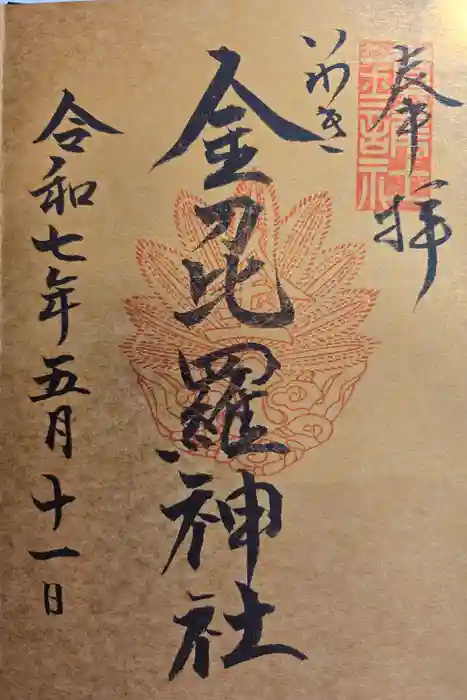 奉拝
いわき
金刀毘羅神社
令和七年五月十一日